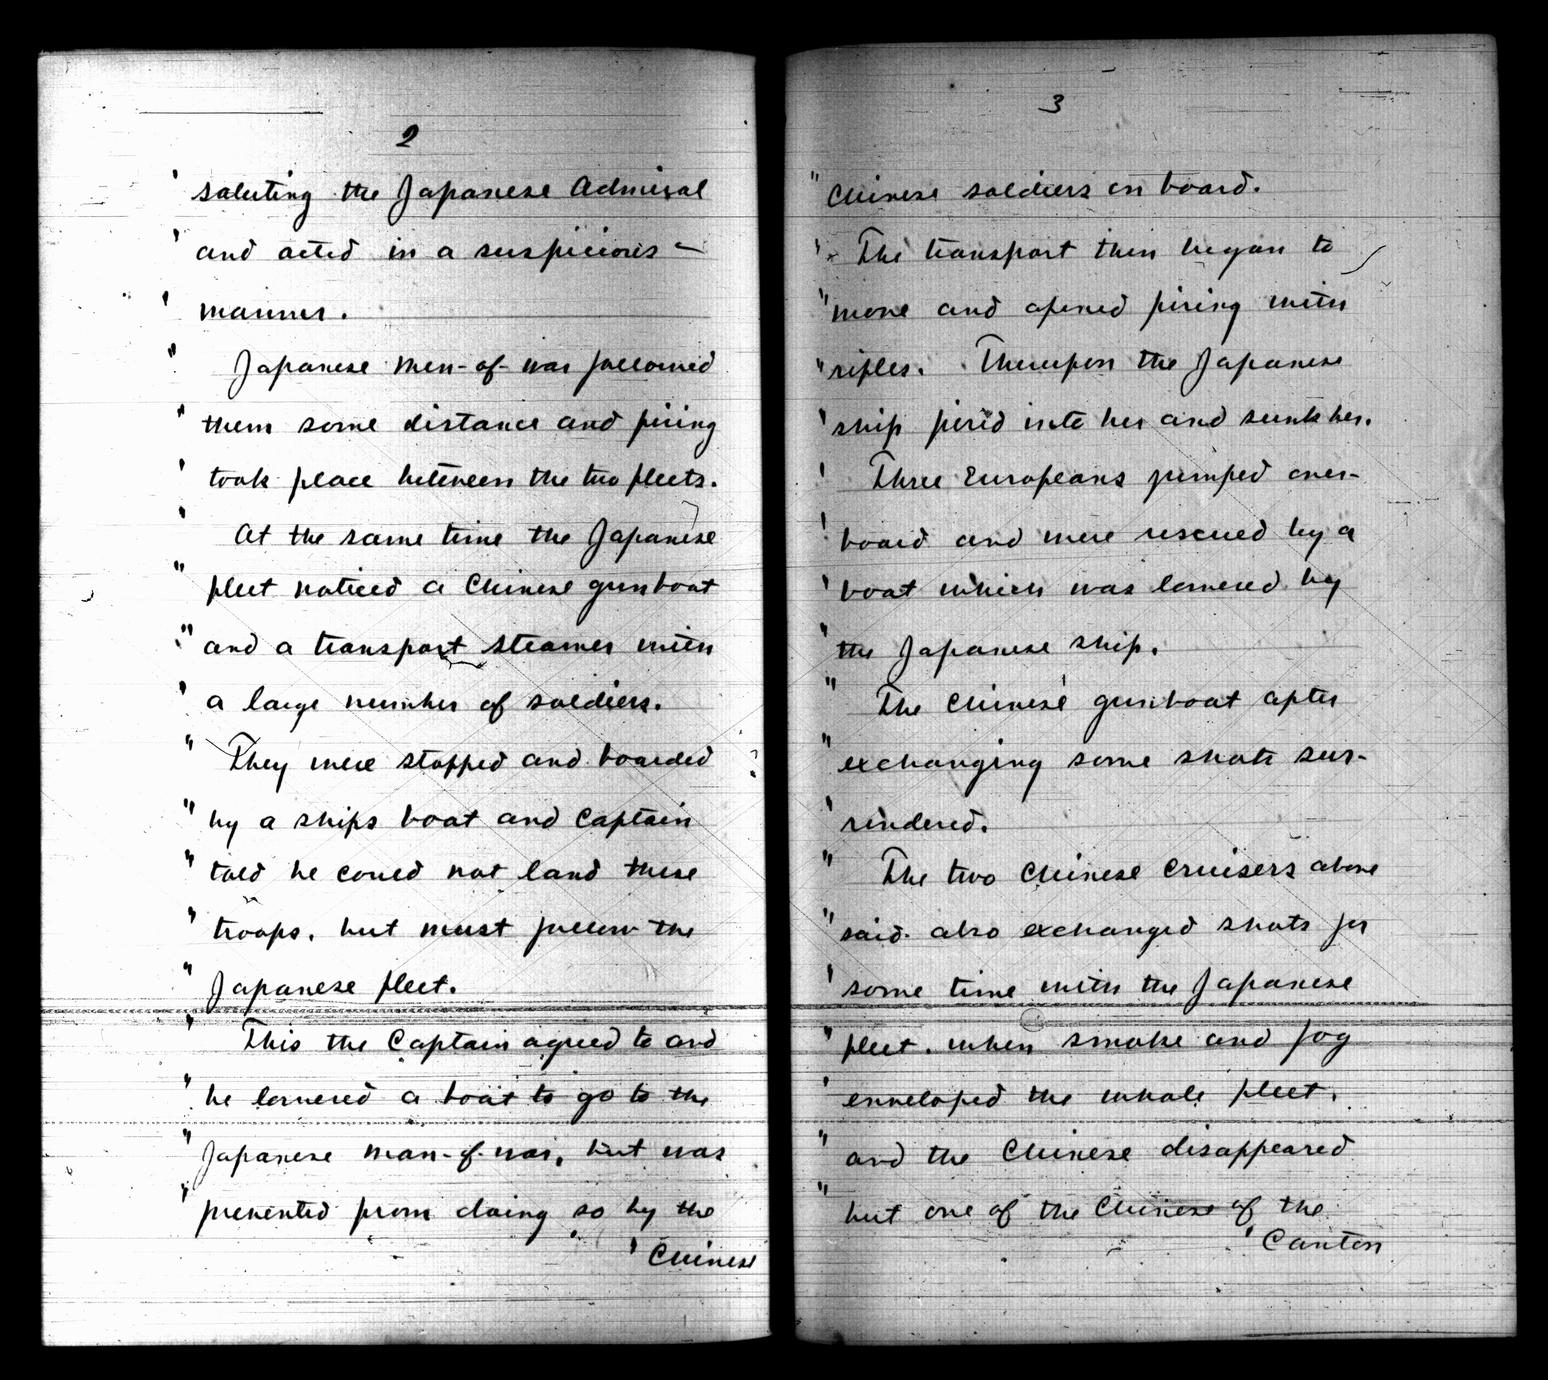 2
" saluting the Japanese Admiral
" and acted in a suspicious –
" manner.
" Japanese Men-of-war followed
" them some distance and firing
" took place between the two fleets.
" At the same time the Japanese
" fleet noticed a Chinese gunboat
" and a transport steamer with
" a large number of soldiers.
" They were stopped and boarded
" by a ships boat and Captain
" told he could not land these
" troops, but must follow the
" Japanese fleet.
" This the Captain agreed to and
" he lowered a boat to go to the
" Japanese man-of-war, but was
" prevented from doing so by the
" Chinese
3
" Chinese soldiers on board.
" The transport then began to
" move and opened firing with
" rifles. Thereupon the Japanese
" ship fired into her and sunk her.
" Three Europeans jumped over-
" board and were rescued by a
" boat which was lowered by
" the Japanese ship.
" The Chinese gunboat after
" exchanging some shots sur-
" rendered.
" The two Chinese Cruisers above
" said. also exchanged shots for
" some time with the Japanese
" fleet. when smoke and fog
" enveloped the whole fleet,
" and the Chinese disappeared
" but one of the Chinese of the
" Canton